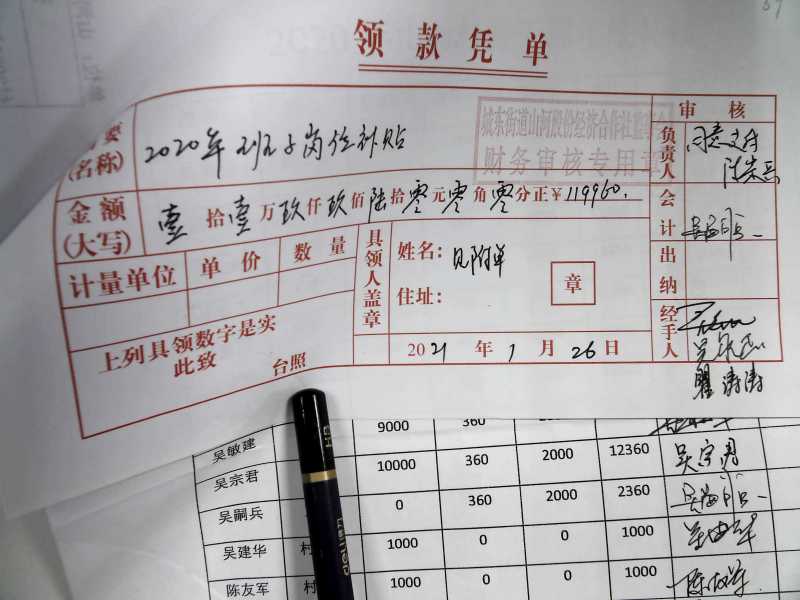 领款凭单
要
(名称)
2020年班子岗位补贴
城东街道山河股份经济合作社监
财务审核专用章
审核
负责人
同意支付
金额
(大写)
壹拾壹万玖仟玖佰陆拾零元零角零分正¥119960.
会计
计量单位 单价 数量
具领人盖章
姓名：见附单
住址：
章
出纳
经手人
上列具领数字是实
此致
台照
2021年1月26日
瞿涛涛
吴敏建 9000 360
吴宗君 10000 360 2000 12360
吴嗣兵 0 360 2000 2360
吴建华 村 1000 0 0 1000
陈友军 村 1000 0 0 1000 陈友军